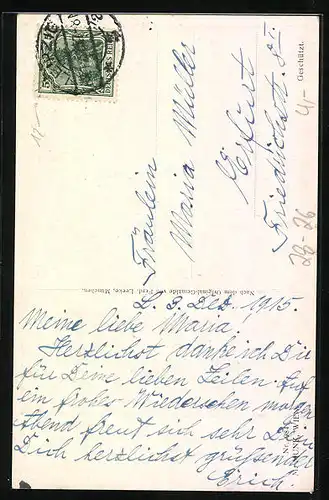 Fräulein
Maria Müller
Erfurt
Friedrichstr. 8 I
Geschützt.
Nach dem Original-Gemälde von Ferd. Leeke, München.
L. 9. Dez. 1915.
Meine liebe Maria!
Herzlichst danke ich Dir
für Deine lieben Zeilen. Auf
ein frohes Wiedersehen morgen
abend freut sich sehr Dein
Dich herzlichst grüßender
Erich.
5
DEUTSCHES REICH
4/-
23-26